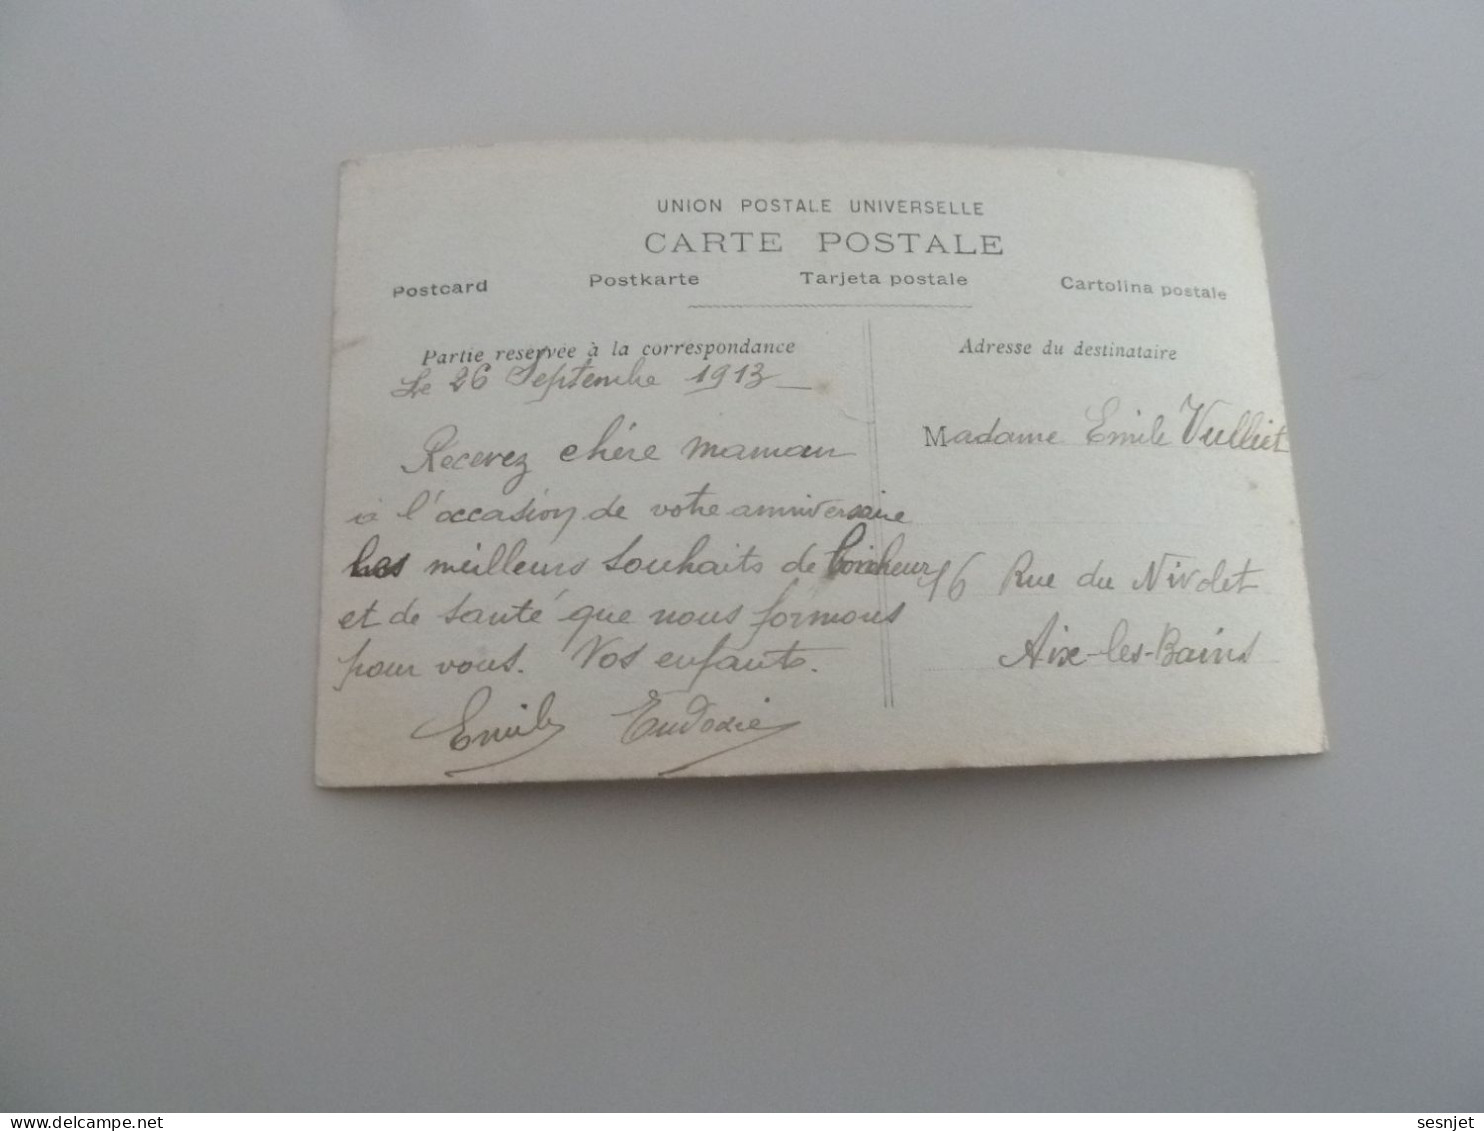 UNION POSTALE UNIVERSELLE
CARTE POSTALE
Postcard Postkarte Tarjeta postale Cartolina postale
Partie reservée à la correspondance
Le 26 Septembre 1913
Recevez chère maman
à l'occasion de votre anniversaire
les meilleurs souhaits de bonheur
et de santé que nous formons
pour vous. Vos enfants.
Emile Eudoxie
Adresse du destinataire
Madame Emile Vulliet
16 Rue du Nivolet
Aix-les-Bains
sesnjet